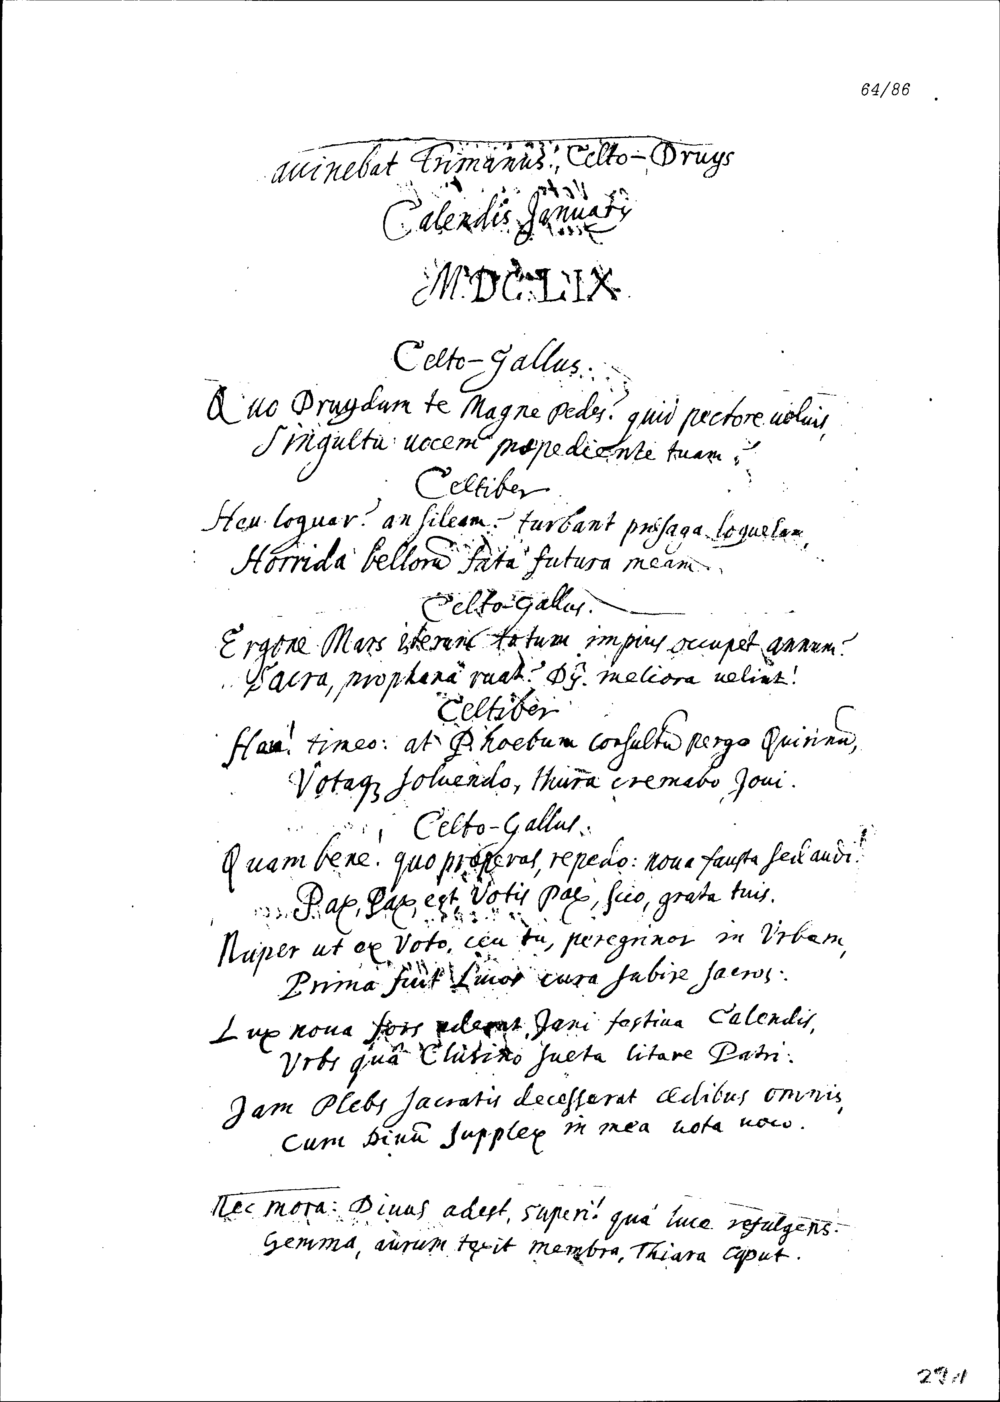 64/86
auinebat Trimanus, Celto-Druys
Calendis Januarij
MDCLIX
Celto-Gallus.
Quo Druydum te Magne pedes? quid pectore uoluis,
Singultu uocem præpediente tuam?
Celtiber
Heu loquar? an sileam? turbant præsaga loquelam,
Horrida bellorũ fata futura meam.
Celto-Gallus.
Ergone Mars iterum totum impius occupet annum?
Sacra, prophana ruat? Dij meliora uelint!
Celtiber
Hau! timeo: at Phoebum consultũ pergo Quirinũ,
Votaq; soluendo, thura cremabo Joui.
Celto-Gallus.
Quam bene! quo properas, repedo: noua fausta sed audi!
Pax, Pax, est, Votis Pax, scio, grata tuis.
Nuper ut ex Voto, ceu tu, peregrinor in Urbem,
Prima fuit Lucos cura subire sacros:
Lux noua fors aderat Jani festiua Calendis,
Urbs quâ Clusino sueta litare Patri:
Jam Plebs sacratis decesserat ædibus omnis,
Cum Diuũ supplex in mea uota uoco.
Nec mora: Diuus adest, superi! quâ luce refulgens:
Gemma, aurum texit membra, Thiara caput.
291